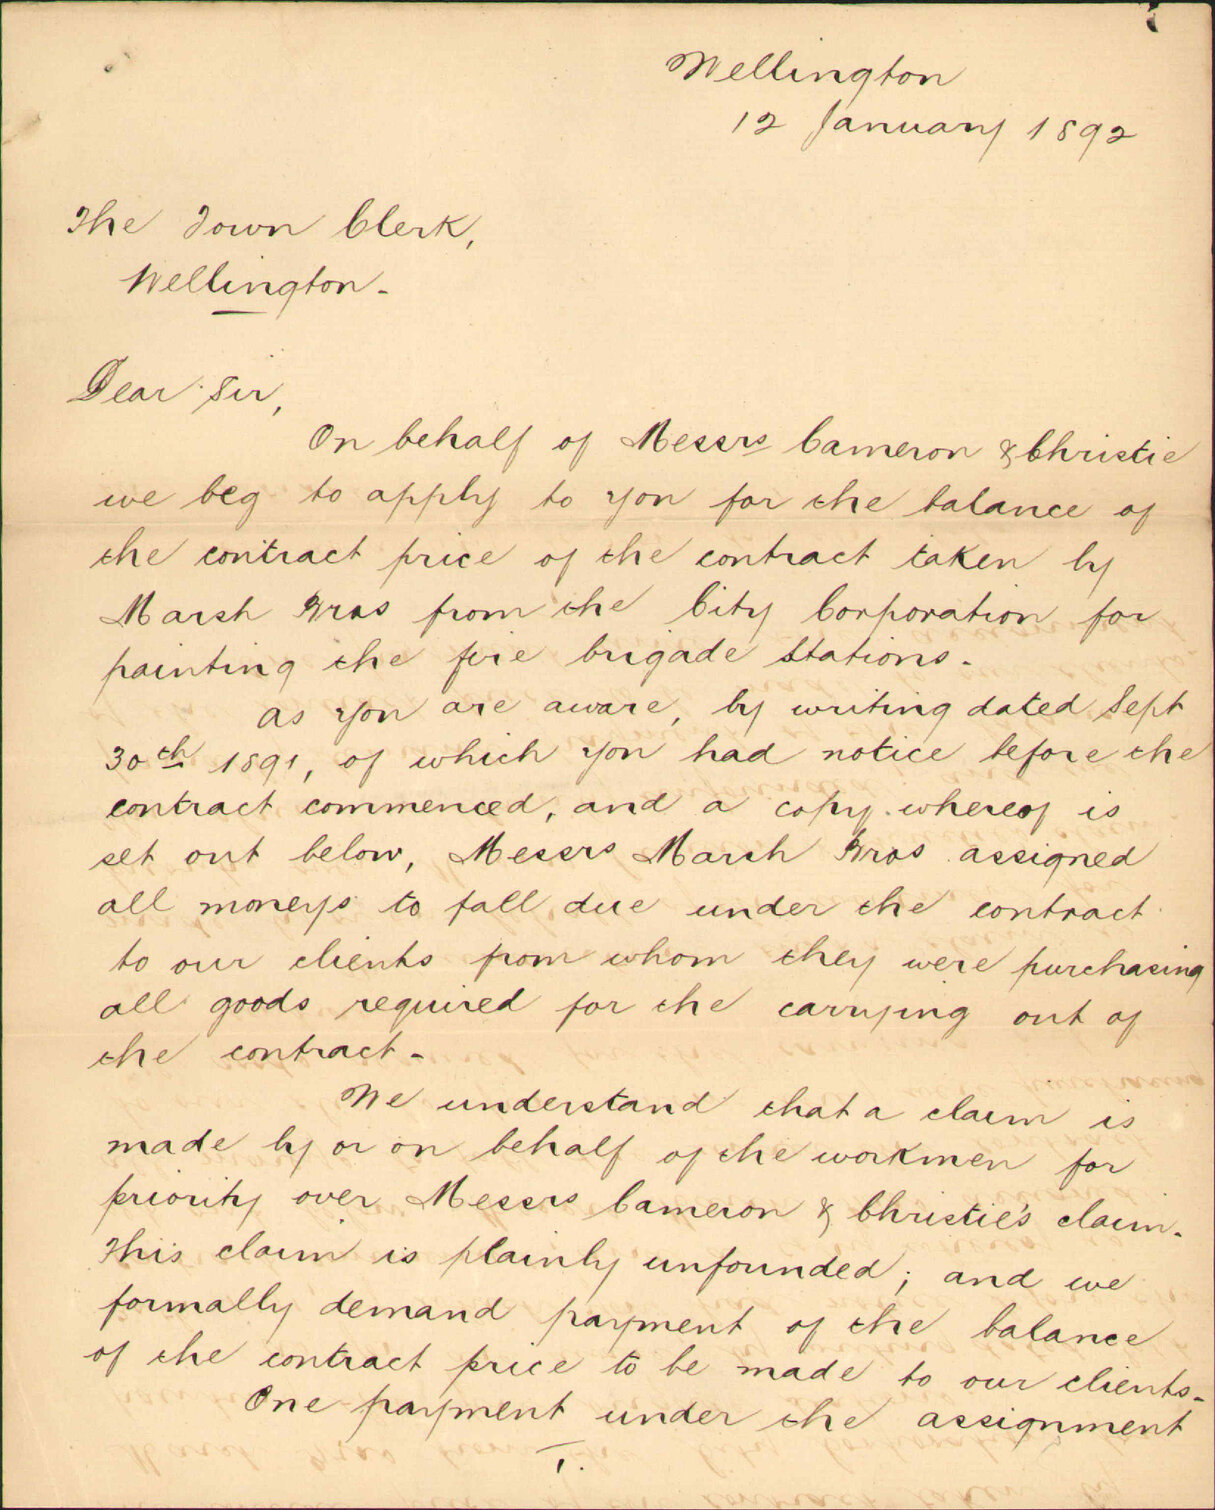 Wellington
12 January 1892
The Town Clerk,
Wellington.
Dear Sir,
On behalf of Messrs Cameron & Christie
we beg to apply to you for the balance of
the contract price of the contract taken by
Marsh Bros from the City Corporation for
painting the fire brigade stations.
As you are aware, by writing dated Sept
30th 1891, of which you had notice before the
contract commenced, and a copy whereof is
set out below, Messrs Marsh Bros assigned
all moneys to fall due under the contract
to our clients from whom they were purchasing
all goods required for the carrying out of
the contract.
We understand that a claim is
made by or on behalf of the workmen for
priority over Messrs Cameron & Christie's claim.
This claim is plainly unfounded; and we
formally demand payment of the balance
of the contract price to be made to our clients.
One payment under the assignment
1.